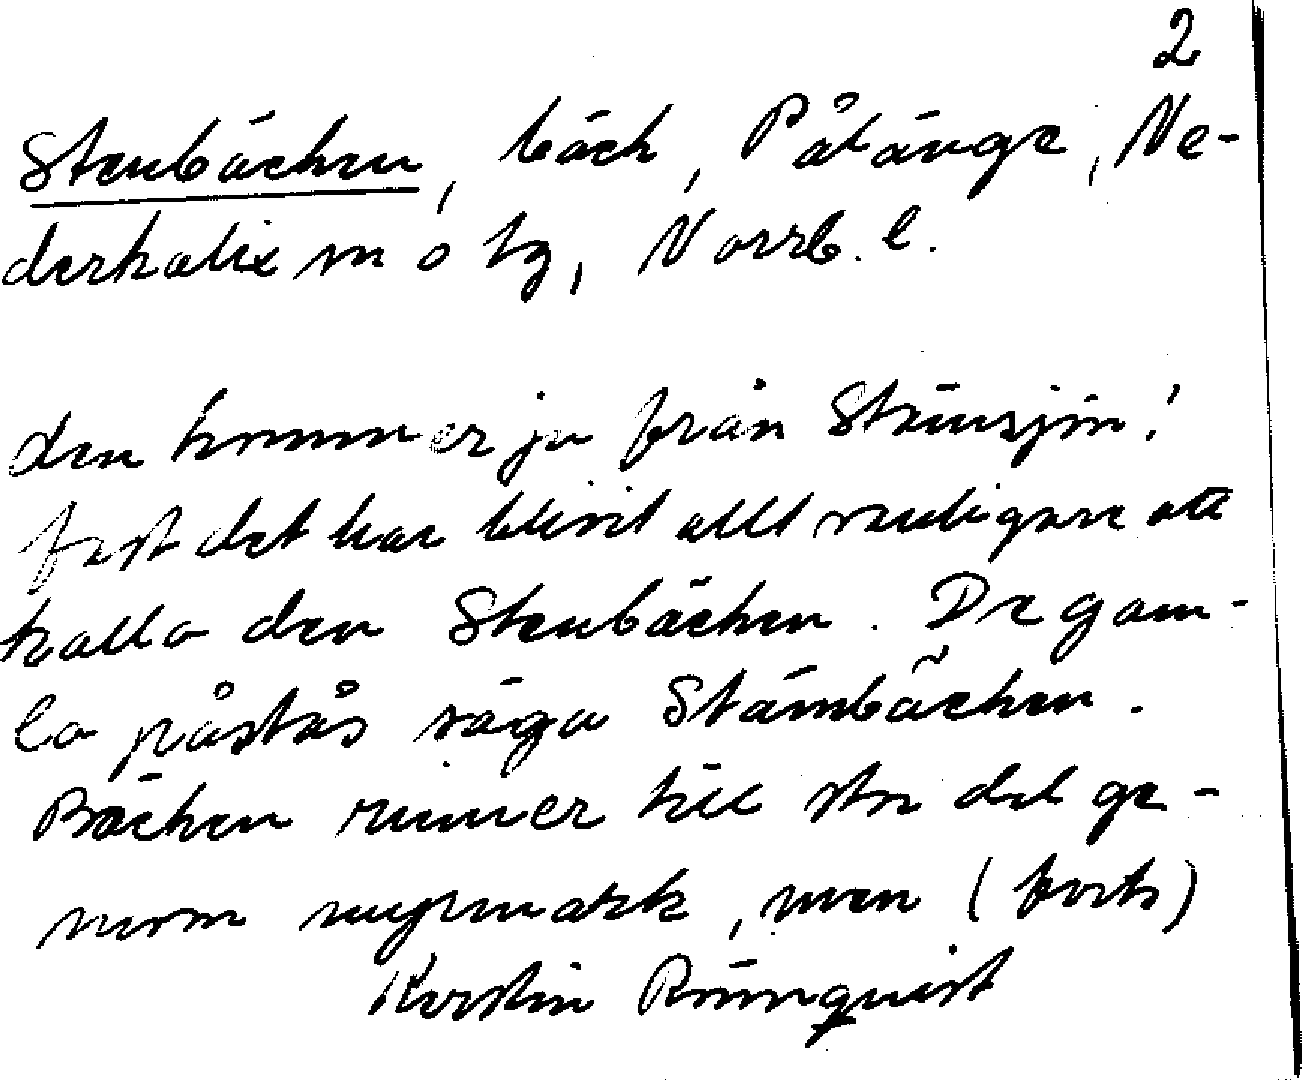 2
Stenbäcken, bäck, Pålänge, Ne-
derkalix sn o tg, Norrb. l.
den kommer ju från Stensjön!
fast det har blivit allt vanligare att
kalla den Stenbäcken. De gam-
la påstås säga Stämbäcken.
Bäcken rinner till stor del ge-
nom myrmark, men (forts)
Kerstin Rönnquist